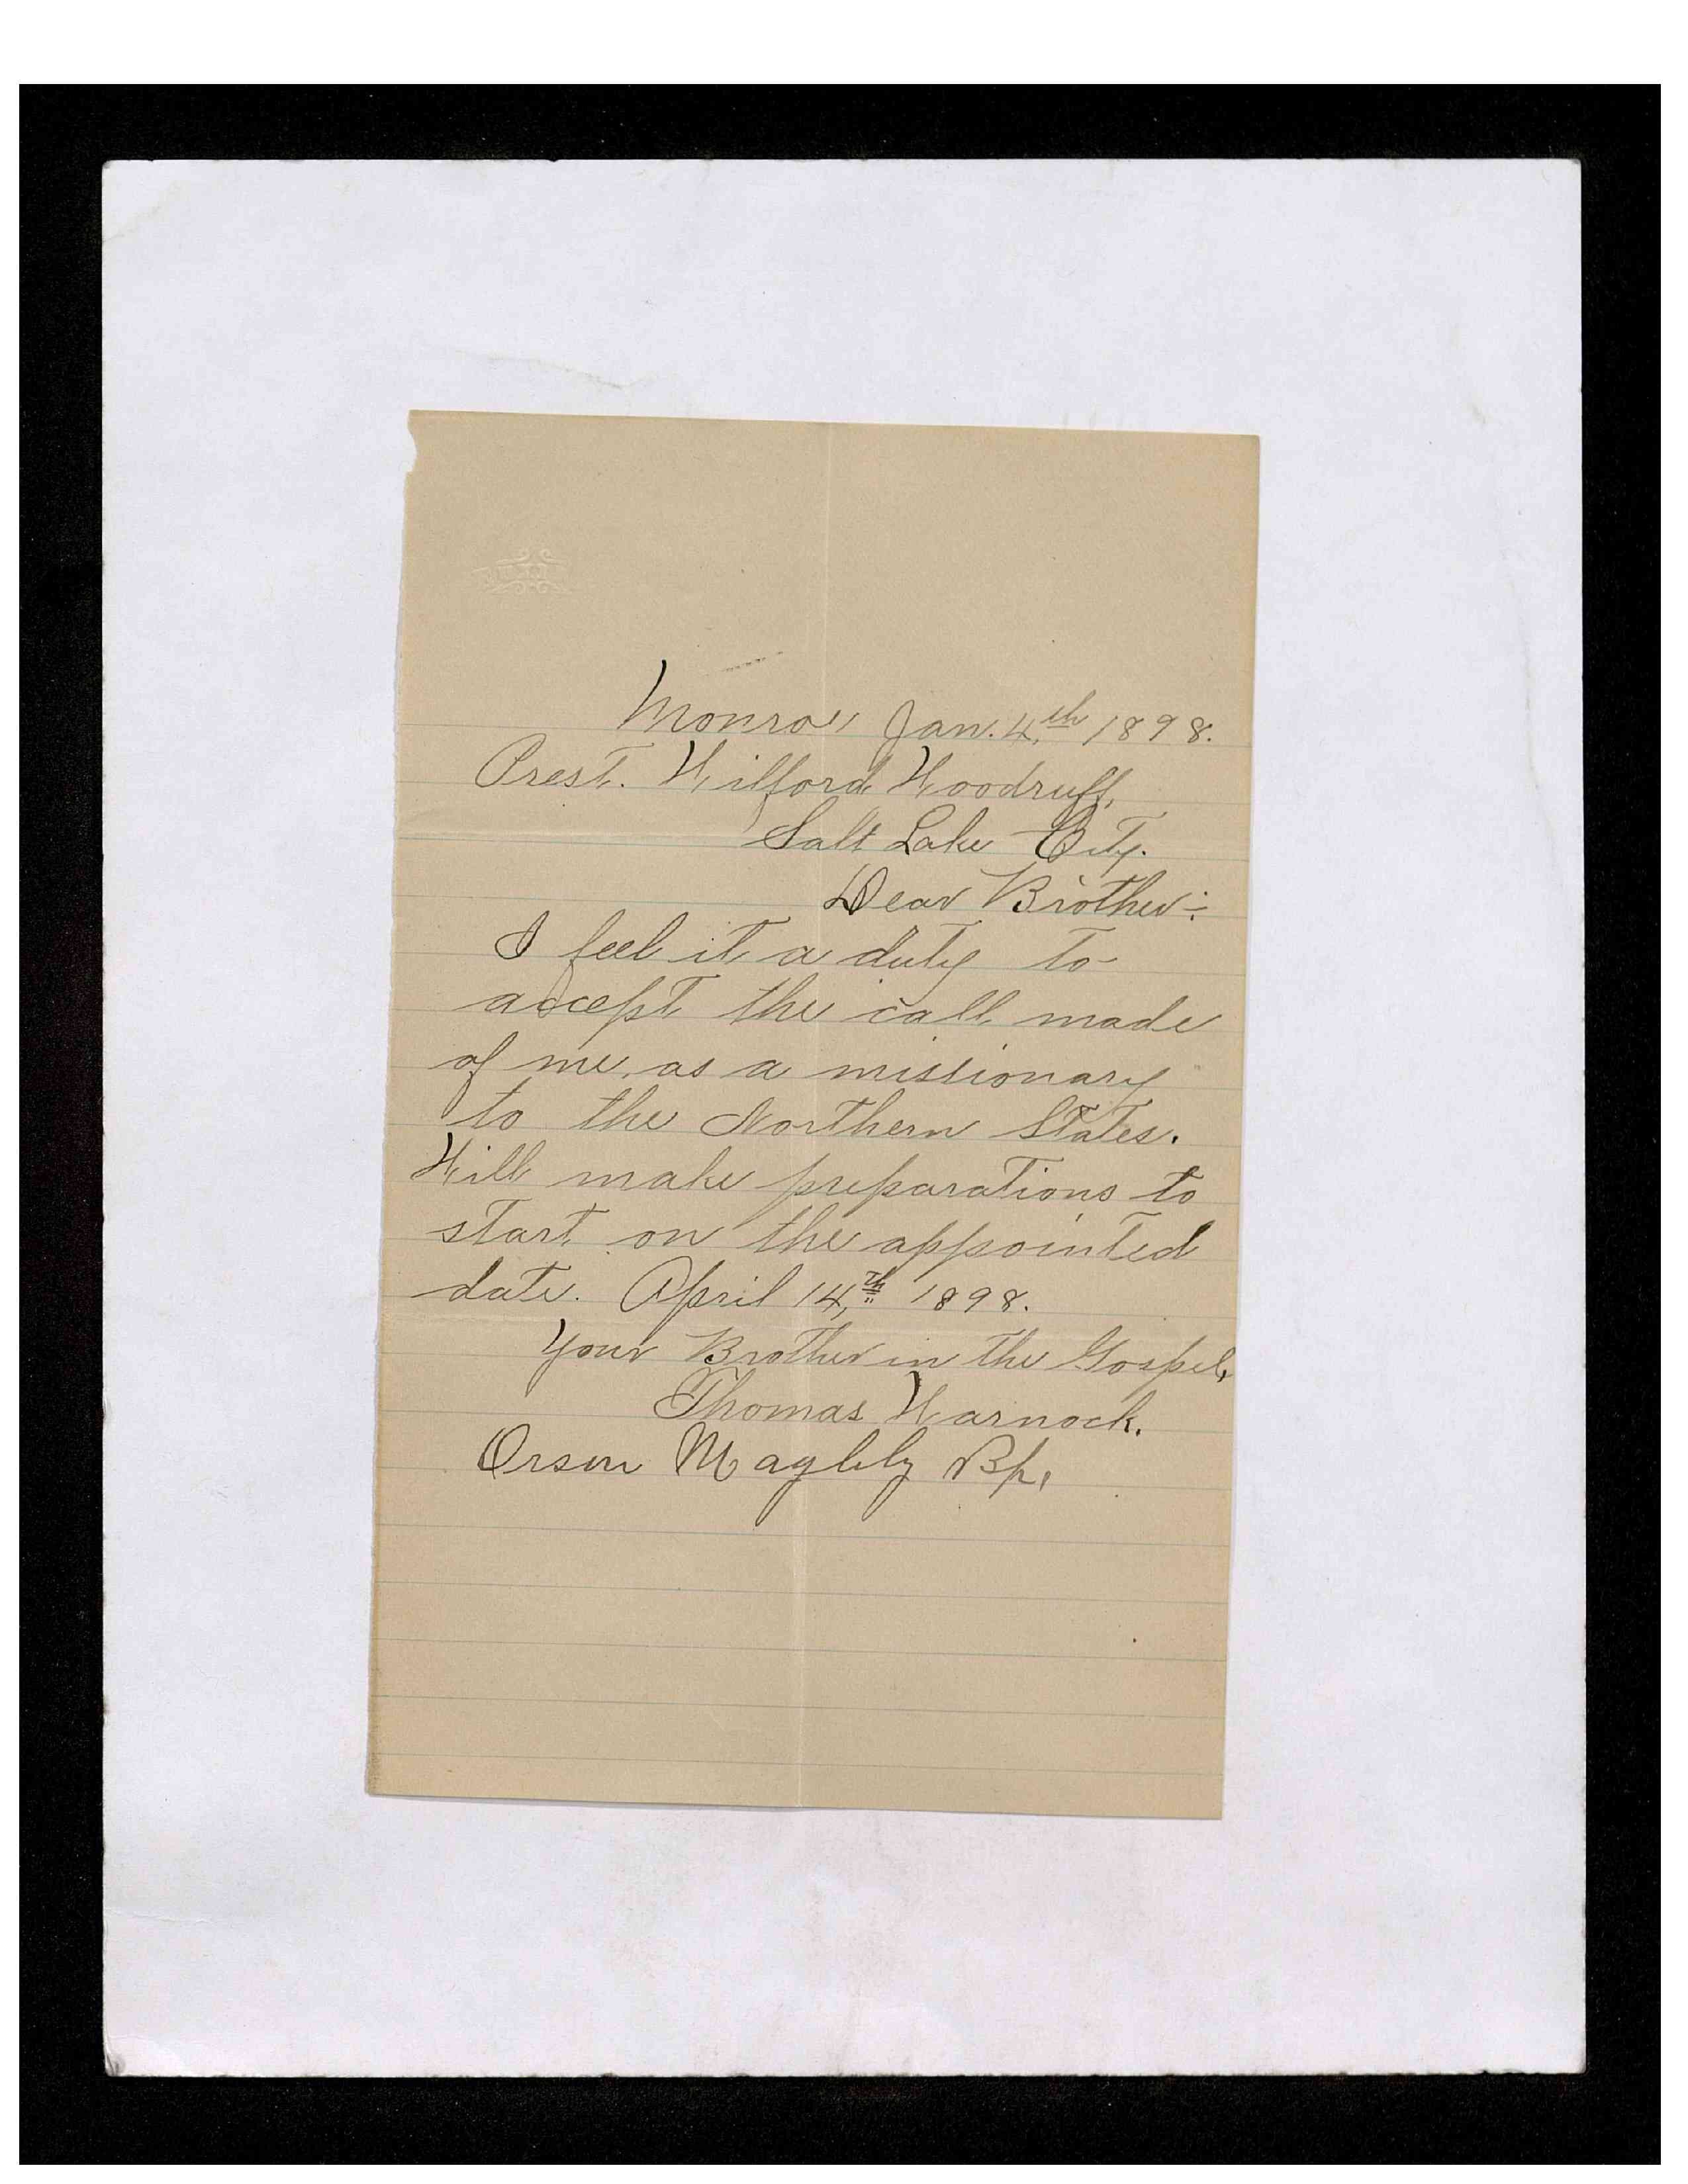 Monroe Jan. 4th 1898.
Prest. Wilford Woodruff,
Salt Lake City.
Dear Brother:
I feel it a duty to
accept the call made
of me, as a missionary
to the Northern States.
Will make preparations to
start on the appointed
date. April 14,th 1898.
Your Brother in the Gospel,
Thomas Warnock.
Orson Magleby Bp.